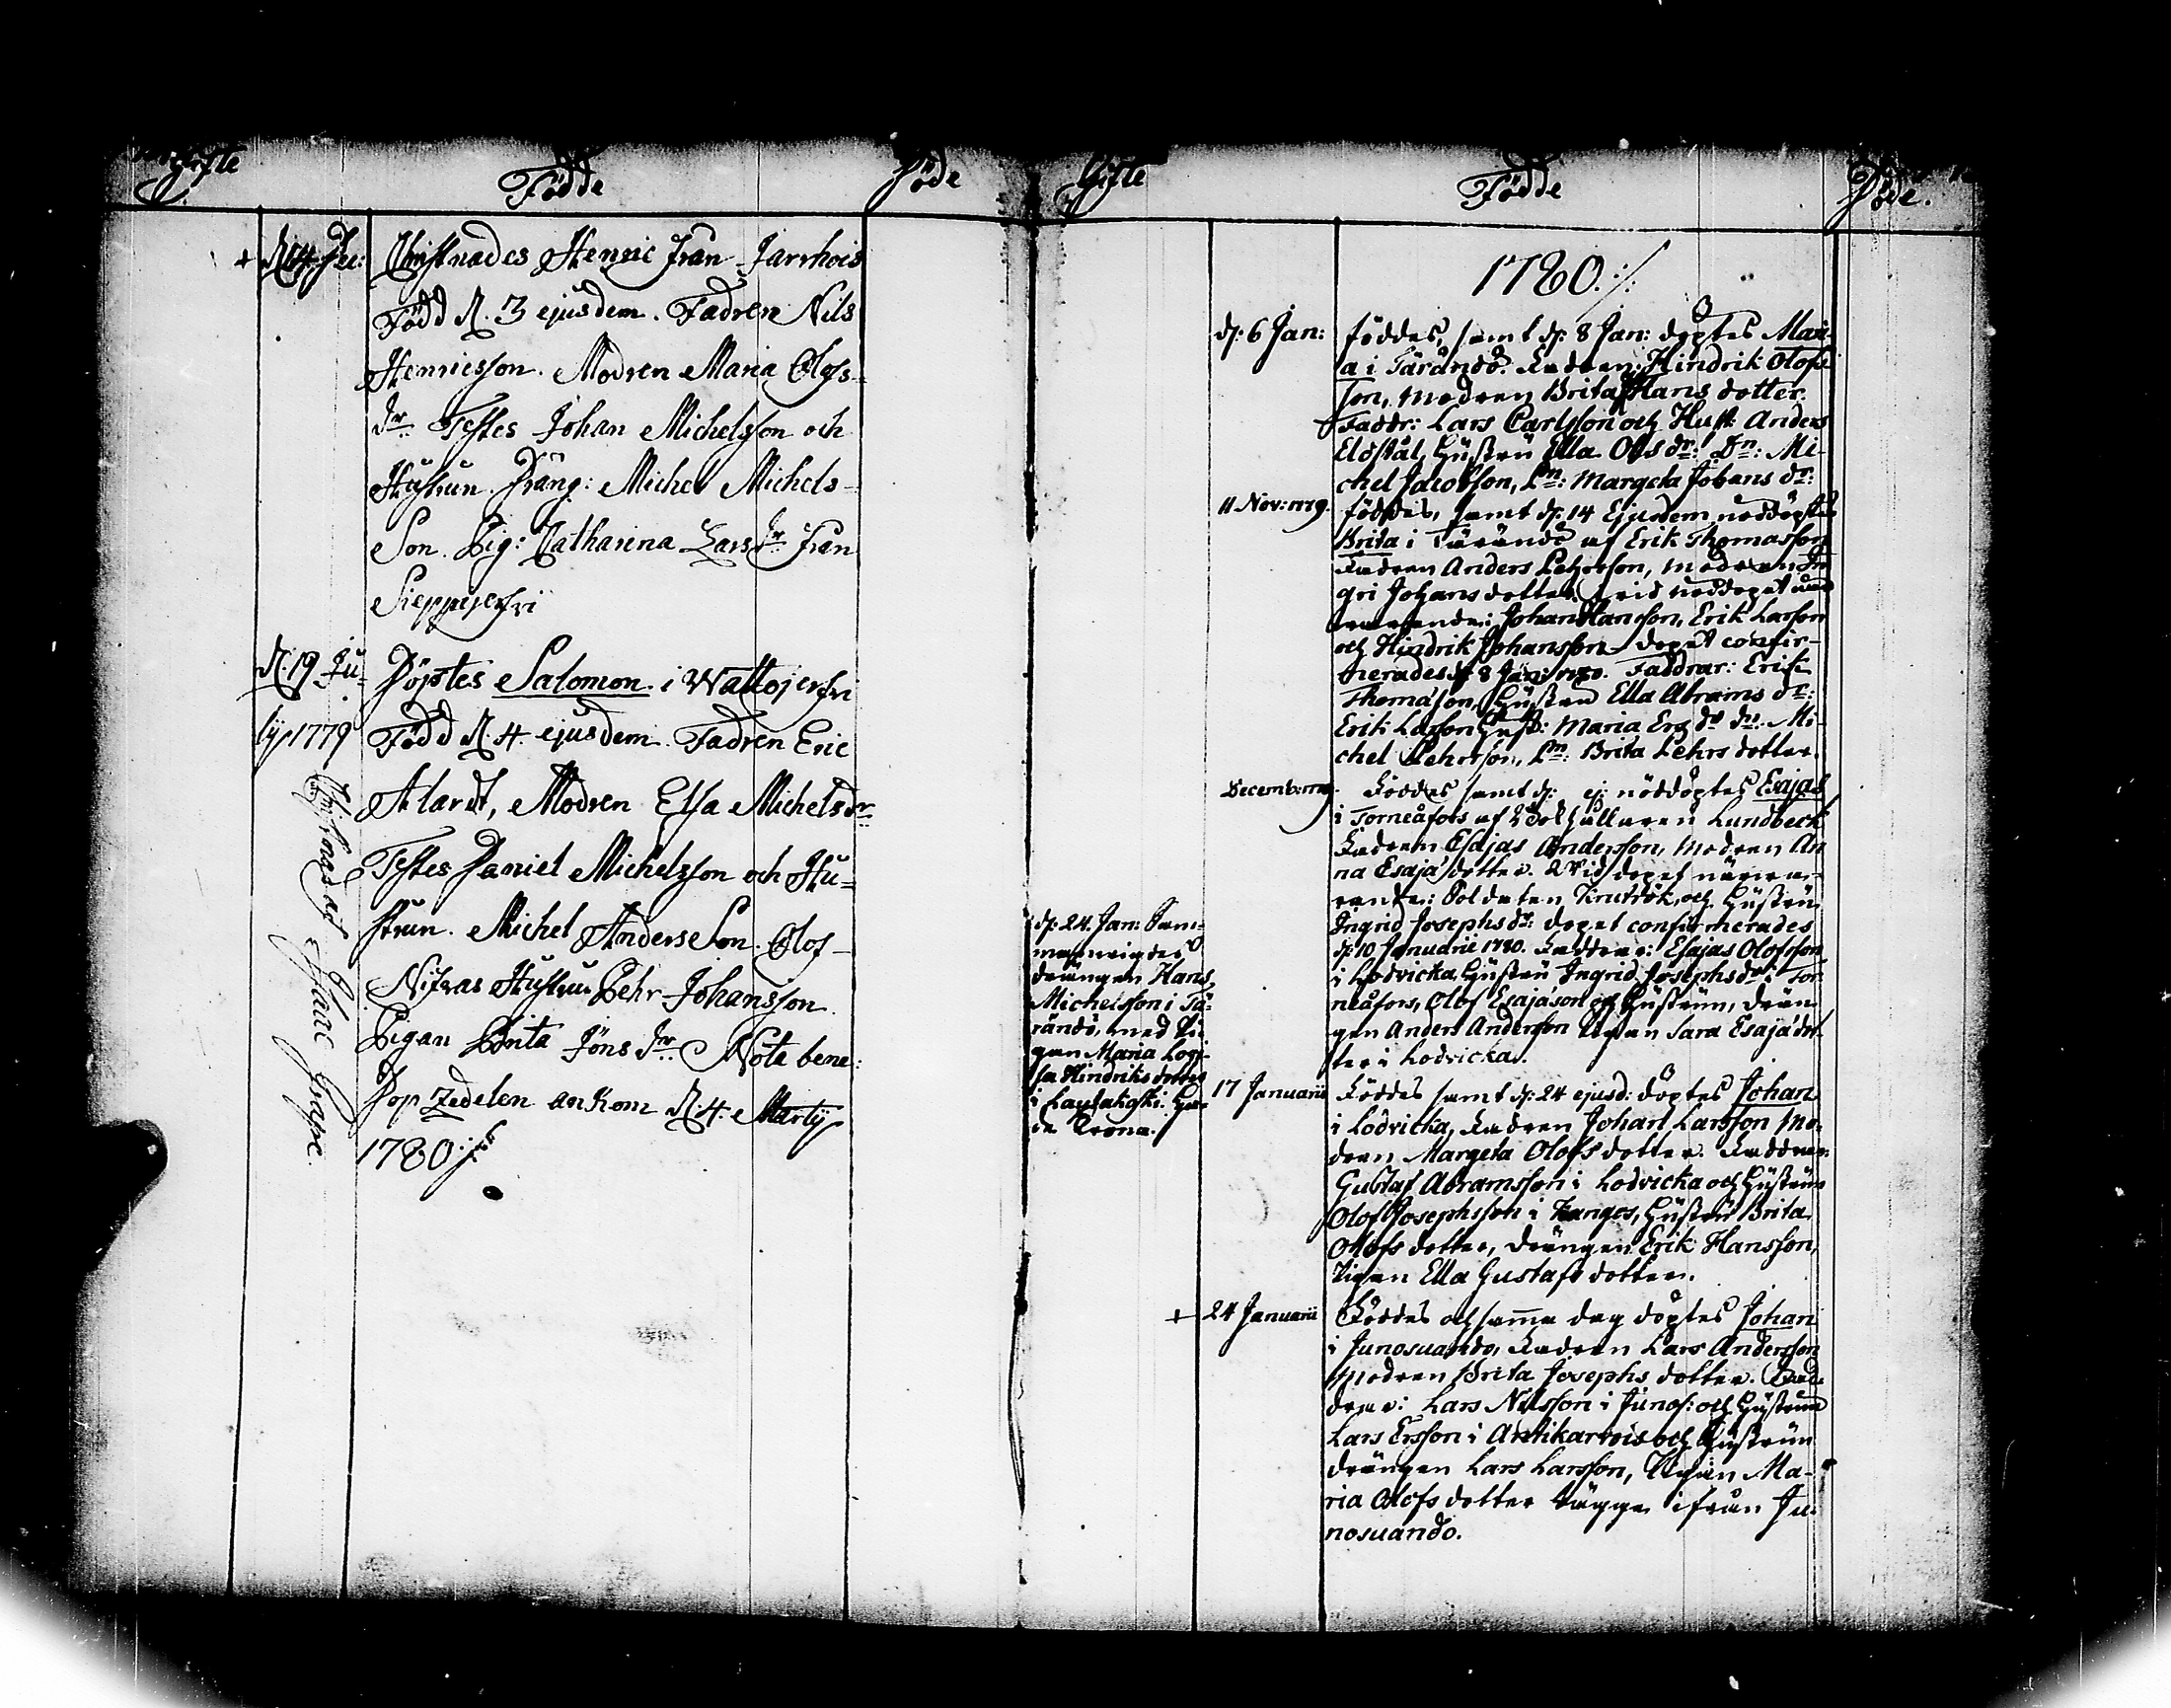 gifte
Födde
Döde
+ d. 4 Dec: Christnades Henric från Jarrhois
Född d. 3 ejusdem. Fadren Nils
Henricsson. Modren Maria Olofs-
dr. Testes Johan Michelsson och
Hustrun. Dräng: Michel Michels-
Son. Pig: Catharina Lars dr. från
Sieppijerfvi
d. 19 Ju-
lÿ 1779
Döptes Salomon i Wattojerfvi
Född d. 4. ejusdem. Fadren Eric
Alardt, Modren Elsa Michelsdr
Testes Daniel Michelsson och Hu-
strun. Michel AnderseSon. Olof
Hustru Pehr Johansson.
Pigan Brita Jöns dr. Nota bene:
Dop Zedelen ankom d. 4. Martij
1780
Christnades Isaac Grape.
Gifte
Födde
Döde.
1780.
d: 6 Jan: föddes, samt d: 8 Jan: döptes Mari-
a i Tärändö. Fadren: Hindrik Olofs-
son, modren Brita Hans dotter.
Faddr: Lars Carlsson och Hust: Anders
Eldstål, hustru Ella Ols dr: Dn: Mi-
chel Jacobsson, Pn: Margeta Johans dr:
11 Nov: 1779. föddes, samt d: 14 Ejusdem nöddöptes
Brita i Tärändö af Erik Thomasson
Fadren Anders Pehrsson, modren In-
gri Johans dotter. vid nöddopet
närvarande: Johan Hansson, Erik Larsson
och Hindrik Johansson dopet confir-
merades d: 8 Jan: 1780. Faddrar: Erik
Thomason, hustru Ella Abrams dr:
Erik Larsson hust: Maria Ers dr dn: Mi-
chel Pehrsson, Pn: Brita Pehrs dotter.
Decemb: 1779. Föddes samt d: ej: nöddöptes Esajas
i Torneåfors af Lundbeck
Fadren Esajas Andersson, modren An-
na Esajæ dotter. Vid dopet närva-
rande: Soldaten Krutrök, och hustru
Ingrid Josephs dr: dopet confirmerades
d: 10 Januarii 1780. Faddrar: Esajas Olofsson
i Lodvicka, hustru Ingrid Josephs dr i Tor-
neåfors, Olof Esajæson och hustrun, drän-
gen Anders Andersson Pigan Sara Esajæ dot-
ter i Lodvicka.
d: 24. Jan: Sam-
manvigdes
drängen Hans
Michelsson i Tä-
rändö, med Pi-
gan Maria Lovi-
sa Hindriks dotter
i Lautakoski.
Krona.
17 Januarii Föddes samt d: 24 ejusd: döptes Johan
i Lodvicka, Fadren Johan Larsson mo-
dren Margeta Olofs dotter. Faddrar:
Gustaf Abramsson i Lodvicka och hustrun
Olof Josephsson i Kangos, hustru Brita
Olofs dotter, drängen Erik Hansson,
Pigan Ella Gustafs dotter.
+ 24 Januarii Föddes och samma dag döptes Johan
i Junosuando, Fadren Lars Andersson
modren Brita Josephs dotter. Fad-
drar: Lars Nilsson i Junos: och hustrun
Lars Ersson i Anttikarvis och hustrun
drängen Lars Larsson, Pigan Ma-
ria Olofs dotter bägge ifrån Ju-
nosuando.